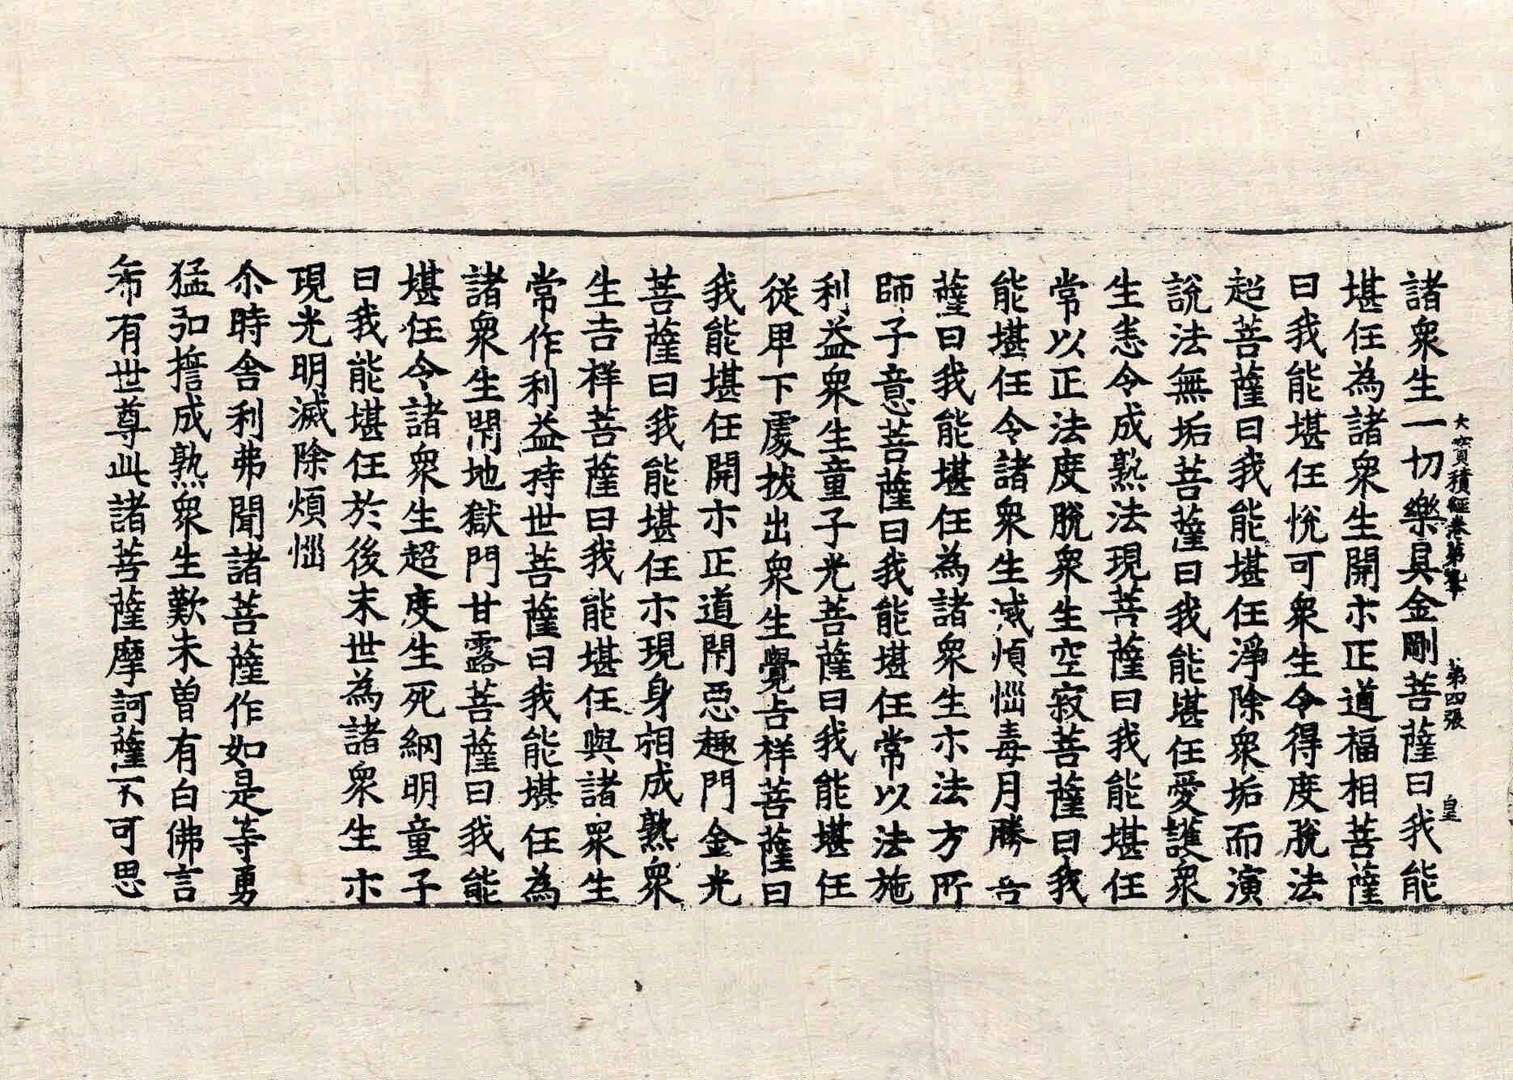 大寶積經卷第 第四張 皇
諸衆生一切樂具金剛菩薩曰我能
堪任為諸衆生開示正道福相菩薩
曰我能堪任悅可衆生令得度脫法
超菩薩曰我能堪任淨除衆垢而演
說法無垢菩薩曰我能堪任愛護衆
生悉令成熟法現菩薩曰我能堪任
常以正法度脫衆生空寂菩薩曰我
能堪任令諸衆生滅煩惱毒月勝菩
薩曰我能堪任為諸衆生示法方所
師子意菩薩曰我能堪任常以法施
利益衆生童子光菩薩曰我能堪任
從卑下處拔出衆生覺吉祥菩薩曰
我能堪任開示正道閇惡趣門金光
菩薩曰我能堪任示現身相成熟衆
生吉祥菩薩曰我能堪任與諸衆生
常作利益持世菩薩曰我能堪任為
諸衆生閇地獄門甘露菩薩曰我能
堪任令諸衆生超度生死網明童子
曰我能堪任於後末世為諸衆生示
現光明滅除煩惱
尒時舍利弗聞諸菩薩作如是等勇
猛弘誓成熟衆生歎未曾有白佛言
希有世尊此諸菩薩摩訶薩不可思